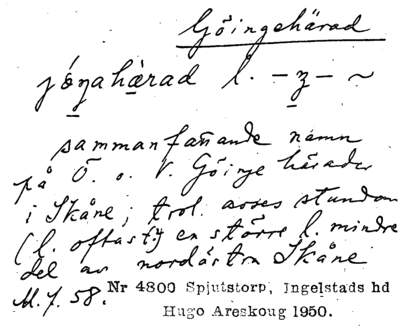 Göingehärad
jǿŋahærad l. – ʒ – ~
sammanfattande namn
på Ö. o. V. Göinge härader
i Skåne; trol. avses stundom
(l. oftast) en större l. mindre
del av nordöstra Skåne
M. 7. 58. Nr 4800 Spjutstorp, Ingelstads hd
Hugo Areskoug 1950.